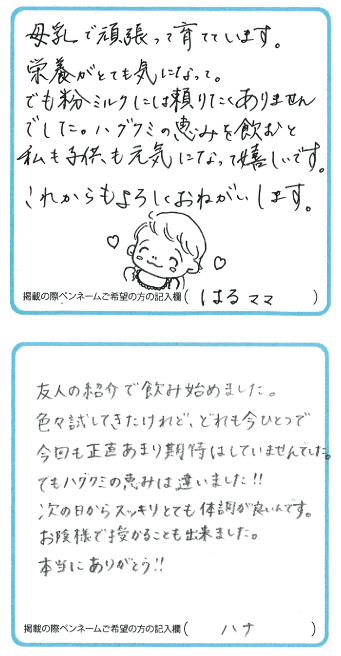 母乳で頑張って育てています。
栄養がとても気になって。
でも粉ミルクには頼りたくありません
でした。ハグクミの恵みを飲むと
私も子供も元気になって嬉しいです。
これからもよろしくおねがいします。
掲載の際ペンネームご希望の方の記入欄( はるママ )
友人の紹介で飲み始めました。
色々試してきたけれど、どれも今ひとつで
今回も正直あまり期待はしていませんでした。
でもハグクミの恵みは違いました!!
次の日からスッキリとても体調が良いんです。
お陰様で授かることも出来ました。
本当にありがとう!!
掲載の際ペンネームご希望の方の記入欄( ハナ )